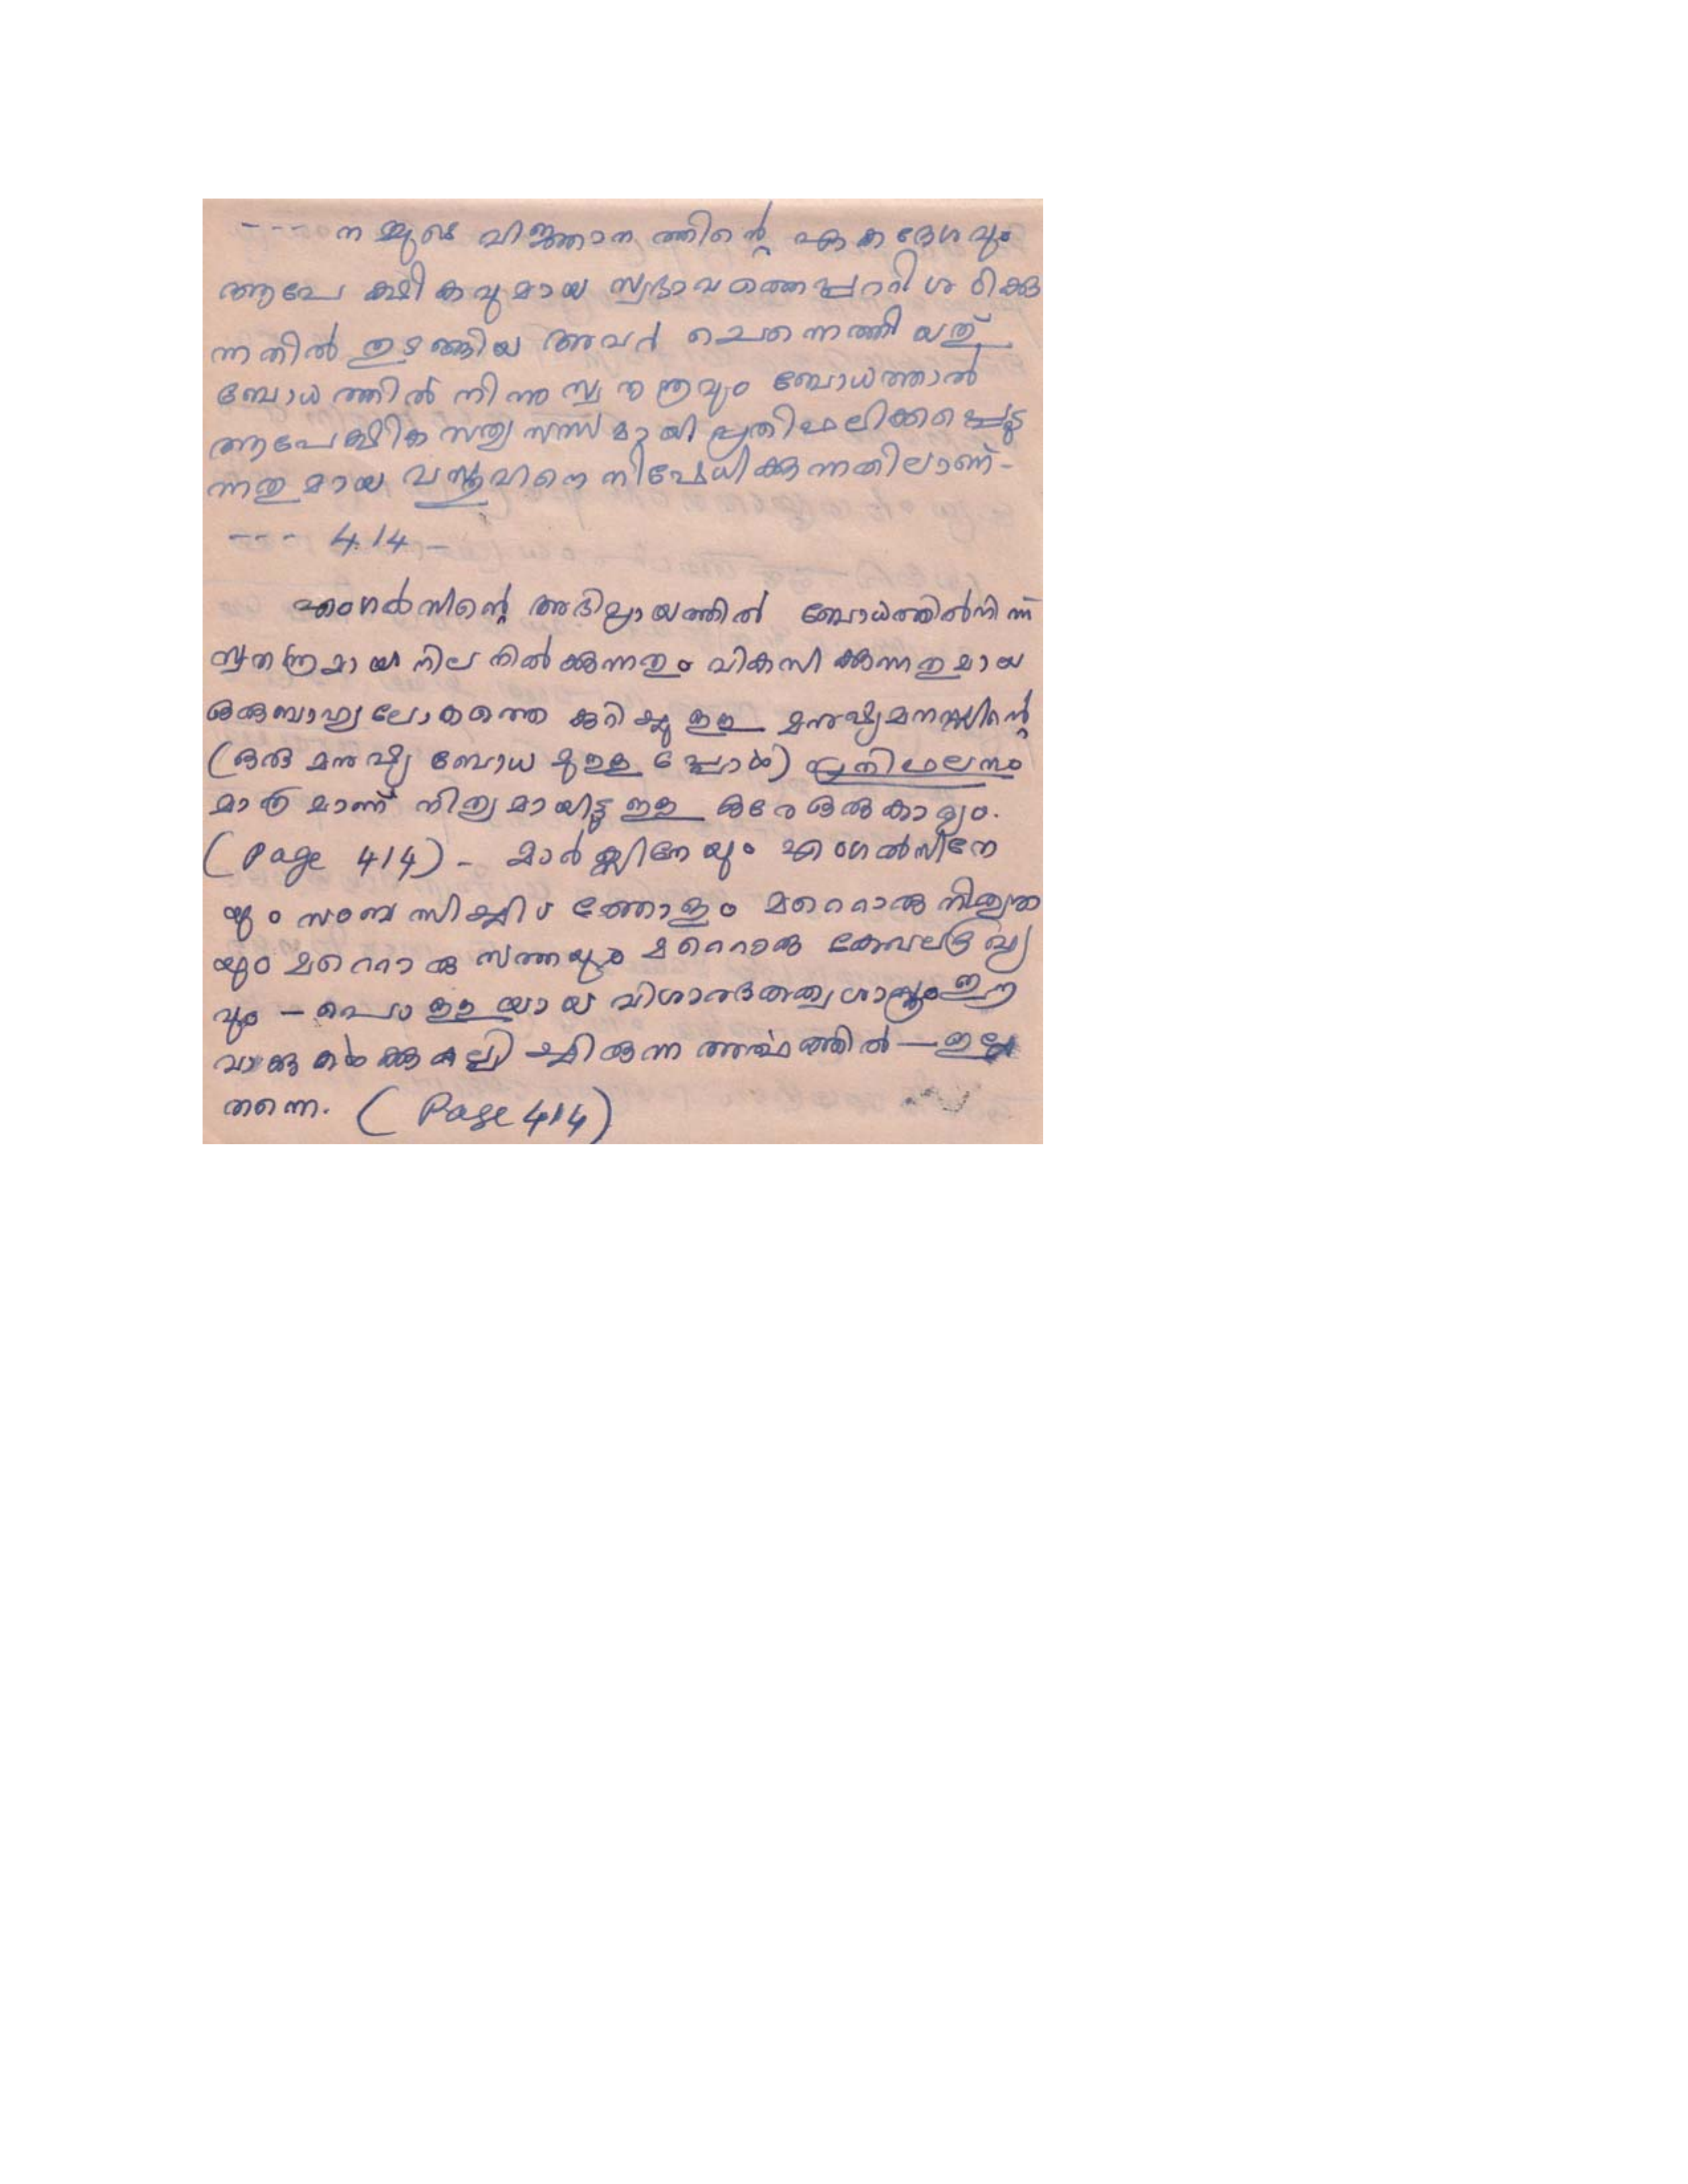 --- നമ്മുടെ വിജ്ഞാനത്തിന്റെ ഏകദേശവും
ആപേക്ഷികവുമായ സ്വഭാവത്തെപ്പററി ശഠിക്കു
ന്നതിൽ തുടങ്ങിയ അവർ ചെന്നെത്തിയത്
ബോധത്തിൽ നിന്നു സ്വതന്ത്രവും ബോധത്താൽ
ആപേക്ഷിക സത്യ മായി പ്രതിഫലിക്കപ്പെടു
ന്നതുമായ വസ്തുവിനെ നിഷേധിക്കുന്നതിലാണ്-
--- 414 -
എംഗൽസിന്റെ അഭിപ്രായത്തിൽ ബോധത്തിൽനിന്ന്
സ്വതന്ത്രമായി നിലനിൽക്കുന്നതും വികസിക്കുന്നതുമായ
ഒരു ബാഹ്യലോകത്തെ കുറിച്ചുള്ള മനുഷ്യമനസ്സിന്റെ
(ഒരു മനുഷ്യ ബോധമുള്ളപ്പോൾ) പ്രതിഫലനം
മാത്രമാണ് നിത്യമായിട്ടുള്ള ഒരേ ഒരു കാര്യം.
(Page 414) - മാർക്സിനേയും എംഗൽസിനേ
യും സംബന്ധിച്ചിടത്തോളം മറെറാരു നിത്യത
യും മറെറാരു സത്തയും മറെറാരു കേവലദ്രവ്യ
വും - പൊള്ളയായ വിശാരദതത്വശാസ്ത്രം ഈ
വാക്കുകൾക്കു കല്പിച്ചിരുന്ന അർത്ഥത്തിൽ - ഇല്ല
തന്നെ. (Page 414)